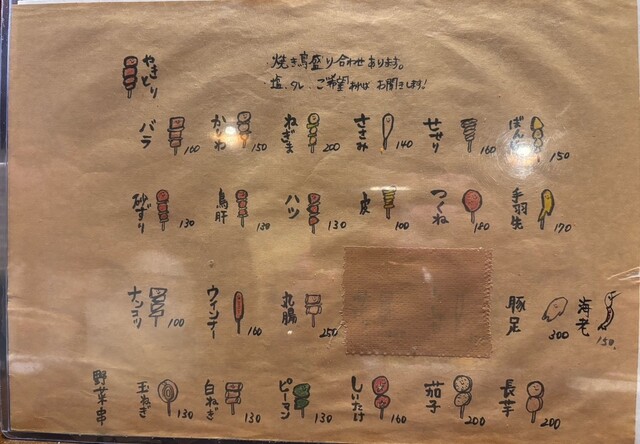 やきとり
焼き鳥盛り合わせあります。
・塩、タレ、ご希望あればお聞きします!
バラ 100
かしわ 150
ねぎま 200
ささみ 140
せせり 160
ぼんじり 150
砂ずり 130
鳥肝 130
ハツ 130
皮 100
つくね 180
手羽先 170
ナンコツ 100
ウインナー 160
丸腸 250
豚足 300
海老 150
野菜串
玉ねぎ 130
白ねぎ 130
ピーマン 130
しいたけ 160
茄子 200
長芋 200